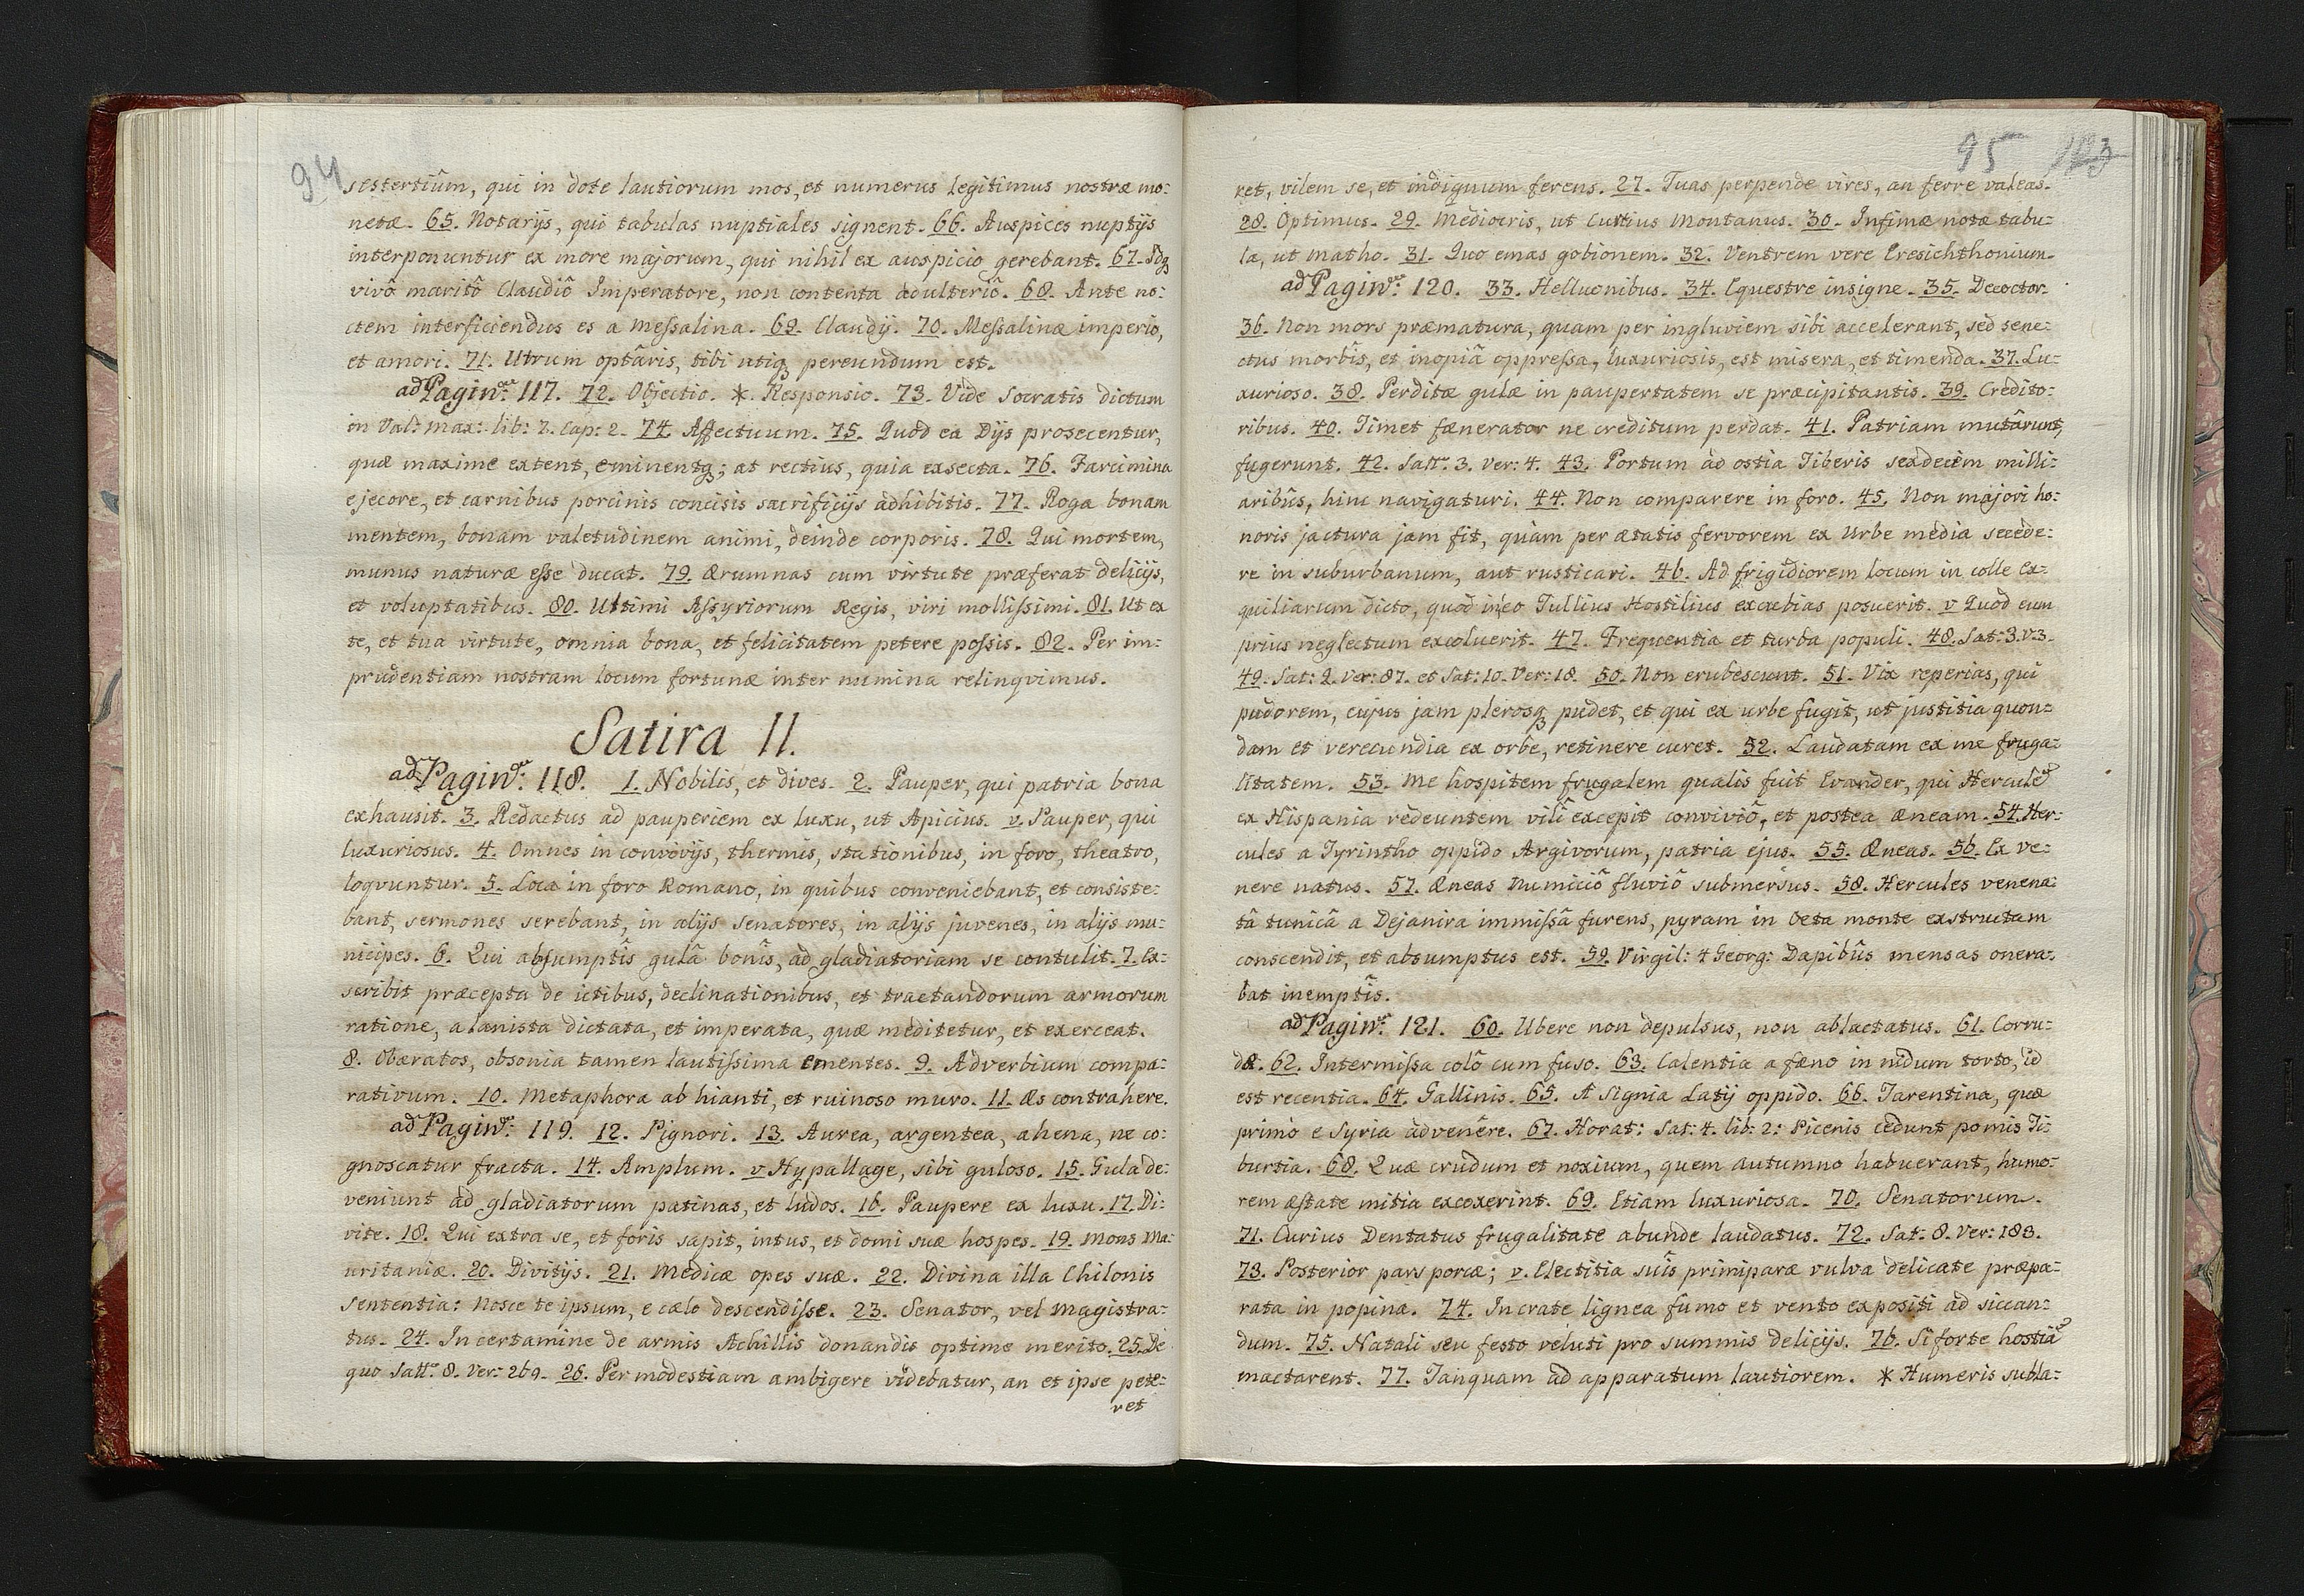 94
sestertiûm, qui in dote lautiorum mos, et numerus legitimus nostræ mo:
netæ. 65. Notarijs, qui tabulas nuptiales signent. 66. Auspices nuptijs
interponuntur ex more majorum, qui nihil ex auspicio gerebant. 67. Idq
vivô maritô Claudiô Imperatore, non contenta adulteriô. 68. Ante no:
ctem interficiendus es a Messalina. 69. Claudij. 70. Messalinæ imperio,
et amori. 71. Utrum optâris, tibi utiq pereundum est.
ad Pagin: 117. 72. Objectio. * Responsio. 73. Vide Socratis dictum
in Val: Max: lib: 7. Cap: 2. 74. Affectuum. 75. Quod ea Dijs prosecentur,
quæ maxime extent, eminentq; at rectius, quia exsecta. 76. Farcimina
e jecore, et carnibus porcinis concisis sacrificijs adhibitis. 77. Roga bonam
mentem, bonam valetudinem animi, deinde corporis. 78. Qui mortem,
munus naturæ esse ducat. 79. Ærumnas cum virtute præferat delicijs,
et voluptatibus. 80. Ultimi Assyriorum Regis, viri mollissimi. 81. Ut ex
te, et tua virtute, omnia bona, et felicitatem petere possis. 82. Per im:
prudentiam nostram locum fortunæ inter numina relinqvimus.
Satira II.
ad Pagin: 118. 1. Nobilis, et dives. 2. Pauper, qui patria bona
exhausit. 3. Redactus ad pauperiem ex luxu, ut Apicius. v. Pauper, qui
luxuriosus. 4. Omnes in convivijs, thermis, stationibus, in foro, theatro,
loqvuntur. 5. Loca in foro Romano, in quibus conveniebant, et consiste:
bant, sermones serebant, in alijs senatores, in alijs juvenes, in alijs mu:
nicipes. 6. Qui absumptîs gulâ bonîs, ad gladiatoriam se contulit. 7. Ex:
scribit præcepta de ictibus, declinationibus, et tractandorum armorum
ratione, a lanista dictata, et imperata, quæ meditetur, et exerceat.
8. Obæratos, obsonia tamen lautissima ementes. 9. Adverbium compa:
rativum. 10. Metaphora ab hianti, et ruinoso muro. 11. Æs contrahere.
ad Pagin: 119. 12. Pignori. 13. Aurea, argentea, ahena, ne co:
gnoscatur fracta. 14. Amplum. v Hypallage, sibi guloso. 15. Gula de:
veniunt ad gladiatorum patinas, et ludos. 16. Paupere ex luxu. 17. Di:
vite. 18. Qui extra se, et foris sapit, intus, et domi suæ hospes. 19. Mons Ma:
uritaniæ. 20. Divitijs. 21. Modicæ opes suæ. 22. Divina illa Chilonis
sententia: Nosce te ipsum, e cælo descendisse. 23. Senator, vel Magistra:
tus. 24. In certamine de armis Achillis donandis optime merito. 25. De
quo Satt: 8. Ver: 269. 26. Per modestiam ambigere videbatur, an et ipse pete:
ret
95 103
ret, vilem se, et indignum ferens. 27. Tuas perpende vires, an ferre valeas.
28. Optimus. 29. Mediocris, ut Curtius Montanus. 30. Infimæ notæ tabu:
la, ut Matho. 31. Quo emas gobionem. 32. Ventrem vere Eresichthonium.
ad Pagin: 120. 33. Helluonibus. 34. Equestre insigne. 35. Decoctor.
36. Non mors præmatura, quam per ingluviem sibi accelerant, sed sene:
ctus morbîs, et inopiâ oppressa, luxuriosis, est misera, et timenda. 37. Lu:
xurioso. 38. Perditæ gulæ in paupertatem se præcipitantis. 39. Credito:
ribus. 40. Timet fænerator ne creditum perdat. 41. Patriam mutârunt,
fugerunt. 42. Satt: 3. Ver: 4. 43. Portum ad ostia Tiberis sexdecim milli:
aribûs, hinc navigaturi. 44. Non comparere in foro. 45. Non majori ho:
noris jactura jam fit, quàm per ætatis fervorem ex Urbe media secede:
re in suburbanum, aut rusticari. 46. Ad frigidiorem locum in colle Ex:
quiliarum dicto, quod in eo Tullius Hostilius excubias posuerit. v Quod eum
prius neglectum excoluerit. 47. Frequentia et turba populi. 48. Sat: 3. V. 3.
49. Sat: 2. Ver: 87. et Sat: 10. Ver: 18. 50. Non erubescunt. 51. Vix reperias, qui
pudorem, cujus jam plerosq pudet, et qui ex urbe fugit, ut justitia quon:
dam et verecundia ex orbe, retinere curet. 52. Laudatam ex me fruga:
litatem. 53. Me hospitem frugalem qualis fuit Evander, qui Herculē
ex Hispania redeuntem vilî excepit conviviô, et postea Æneam. 54. Her:
cules a Tyrintho oppido Argivorum, patria ejus. 55. Æneas. 56. Ex Ve:
nere natus. 57. Æneas Numiciô fluviô submersus. 58. Hercules venena:
tâ tunicâ a Dejanira immissâ furens, pyram in Oeta monte exstructam
conscendit, et absumptus est. 59. Virgil: 4 Georg: Dapibûs mensas onera:
bat inemptîs.
ad Pagin: 121. 60. Ubere non depulsus, non ablactatus. 61. Corru:
dæ. 62. Intermissa colô cum fuso. 63. Calentia a fæno in nidum torto, id
est recentia. 64. Gallinis. 65. A Signia Latij oppido. 66. Tarentina, quæ
primò e Syria advenêre. 67. Horat: Sat: 4. lib: 2: Picenis cedunt pomis Ti:
burtia. 68. Quæ crudum et noxium, quem autumno habuerant, humo:
rem æstate mitia excoxerint. 69. Etiam luxuriosa. 70. Senatorum.
71. Curius Dentatus frugalitate abunde laudatus. 72. Sat: 8. Ver: 183.
73. Posterior pars porcæ; v. Electitia suîs primiparæ vulva delicate præpa:
rata in popina. 74. In crate lignea fumo et vento expositi ad siccan:
dum. 75. Natali seu festo veluti pro summis delicijs. 76. Si forte hostiā
mactarent. 77. Tanquam ad apparatum lautiorem. * Humeris subla: